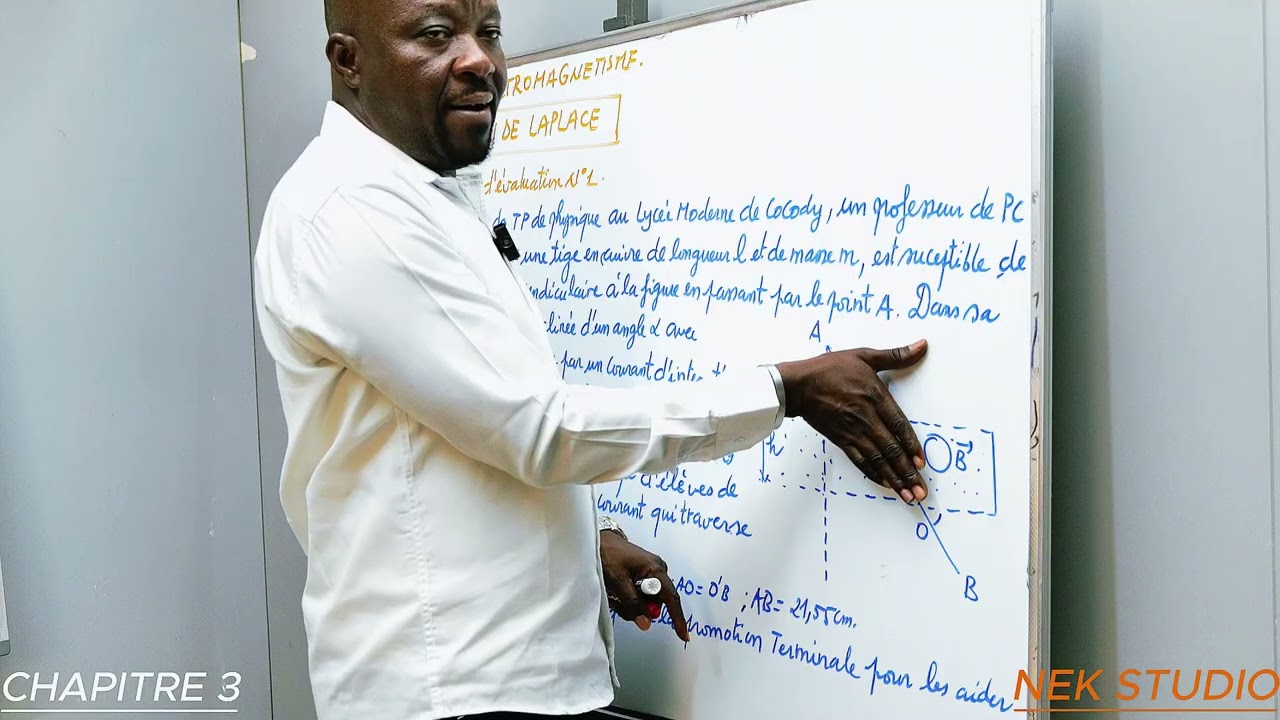 TROMAGNETISME.
DE LAPLACE
d'évaluation N°1.
de TP de physique au Lycée Moderne de Cocody, un professeur de PC
une tige en cuivre de longueur l et de masse m, est suceptible de
ndiculaire à la figure en passant par le point A. Dans sa
linée d'un angle α avec
A
par un courant d'inten
h
B
d'élèves de
courant qui traverse
O
B
AO = O'B ; AB = 21,55cm.
la promotion Terminale pour les aider
CHAPITRE 3
NEK STUDIO